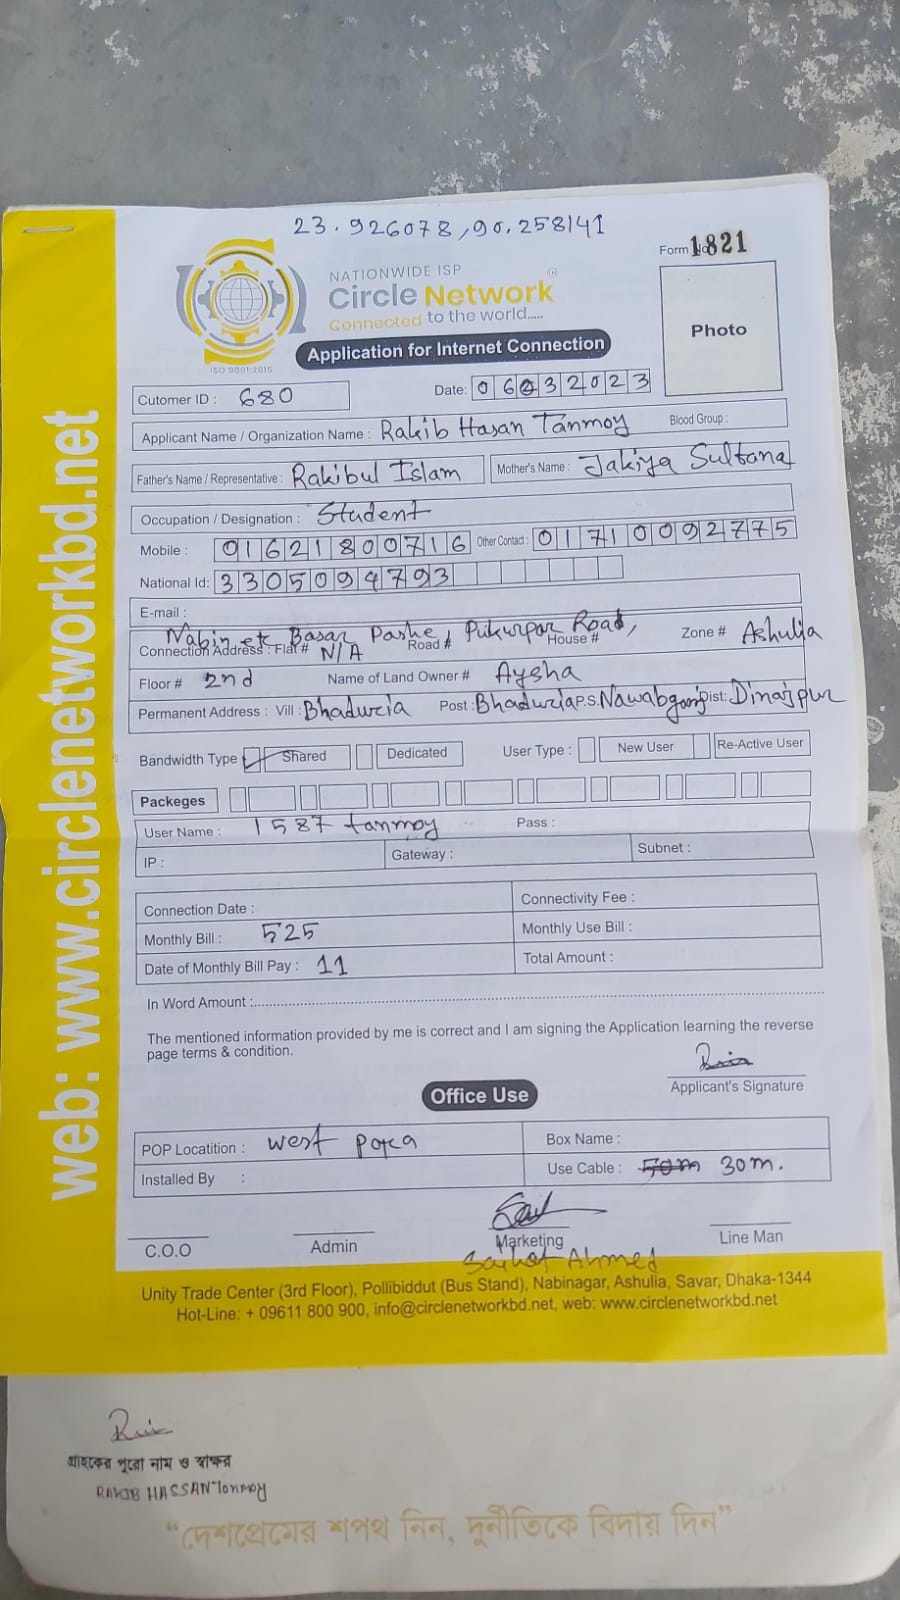 23.926078,90.258141
Form No 1821
NATIONWIDE ISP
Circle Network
Connected to the world.....
ISO 9001:2015
Photo
Application for Internet Connection
Cutomer ID : 680
Date: 06032023
Applicant Name / Organization Name : Rakib Hasan Tanmoy Blood Group :
Father's Name / Representative : Rakibul Islam Mother's Name : Jakiya Sultana
Occupation / Designation : Student
Mobile : 01621800716 Other Contact : 01710092775
National Id: 3305094793
E-mail :
Nabin er Basar Pashe, Pukurpar Road,
Connection Address : Flat # N/A Road # House # Zone # Ashulia
Floor # 2nd Name of Land Owner # Aysha
Permanent Address : Vill : Bhaduria Post : Bhaduria P.S. Nawabganj Dist: Dinajpur
Bandwidth Type Shared Dedicated User Type : New User Re-Active User
Packeges
User Name : 1587 tanmoy Pass :
IP : Gateway : Subnet :
Connection Date : Connectivity Fee :
Monthly Bill : 525 Monthly Use Bill :
Date of Monthly Bill Pay : 11 Total Amount :
In Word Amount :
The mentioned information provided by me is correct and I am signing the Application learning the reverse
page terms & condition.
Applicant's Signature
Office Use
POP Locatition : west Box Name :
Installed By : Use Cable : 50m 30m.
C.O.O Admin Marketing Line Man
Saikat Ahmed
Unity Trade Center (3rd Floor), Pollibiddut (Bus Stand), Nabinagar, Ashulia, Savar, Dhaka-1344
Hot-Line: + 09611 800 900, info@circlenetworkbd.net, web: www.circlenetworkbd.net
web: www.circlenetworkbd.net
গ্রাহকের পুরো নাম ও স্বাক্ষর
RAKIB HASSAN Tonmoy
“দেশপ্রেমের শপথ নিন, দুর্নীতিকে বিদায় দিন”